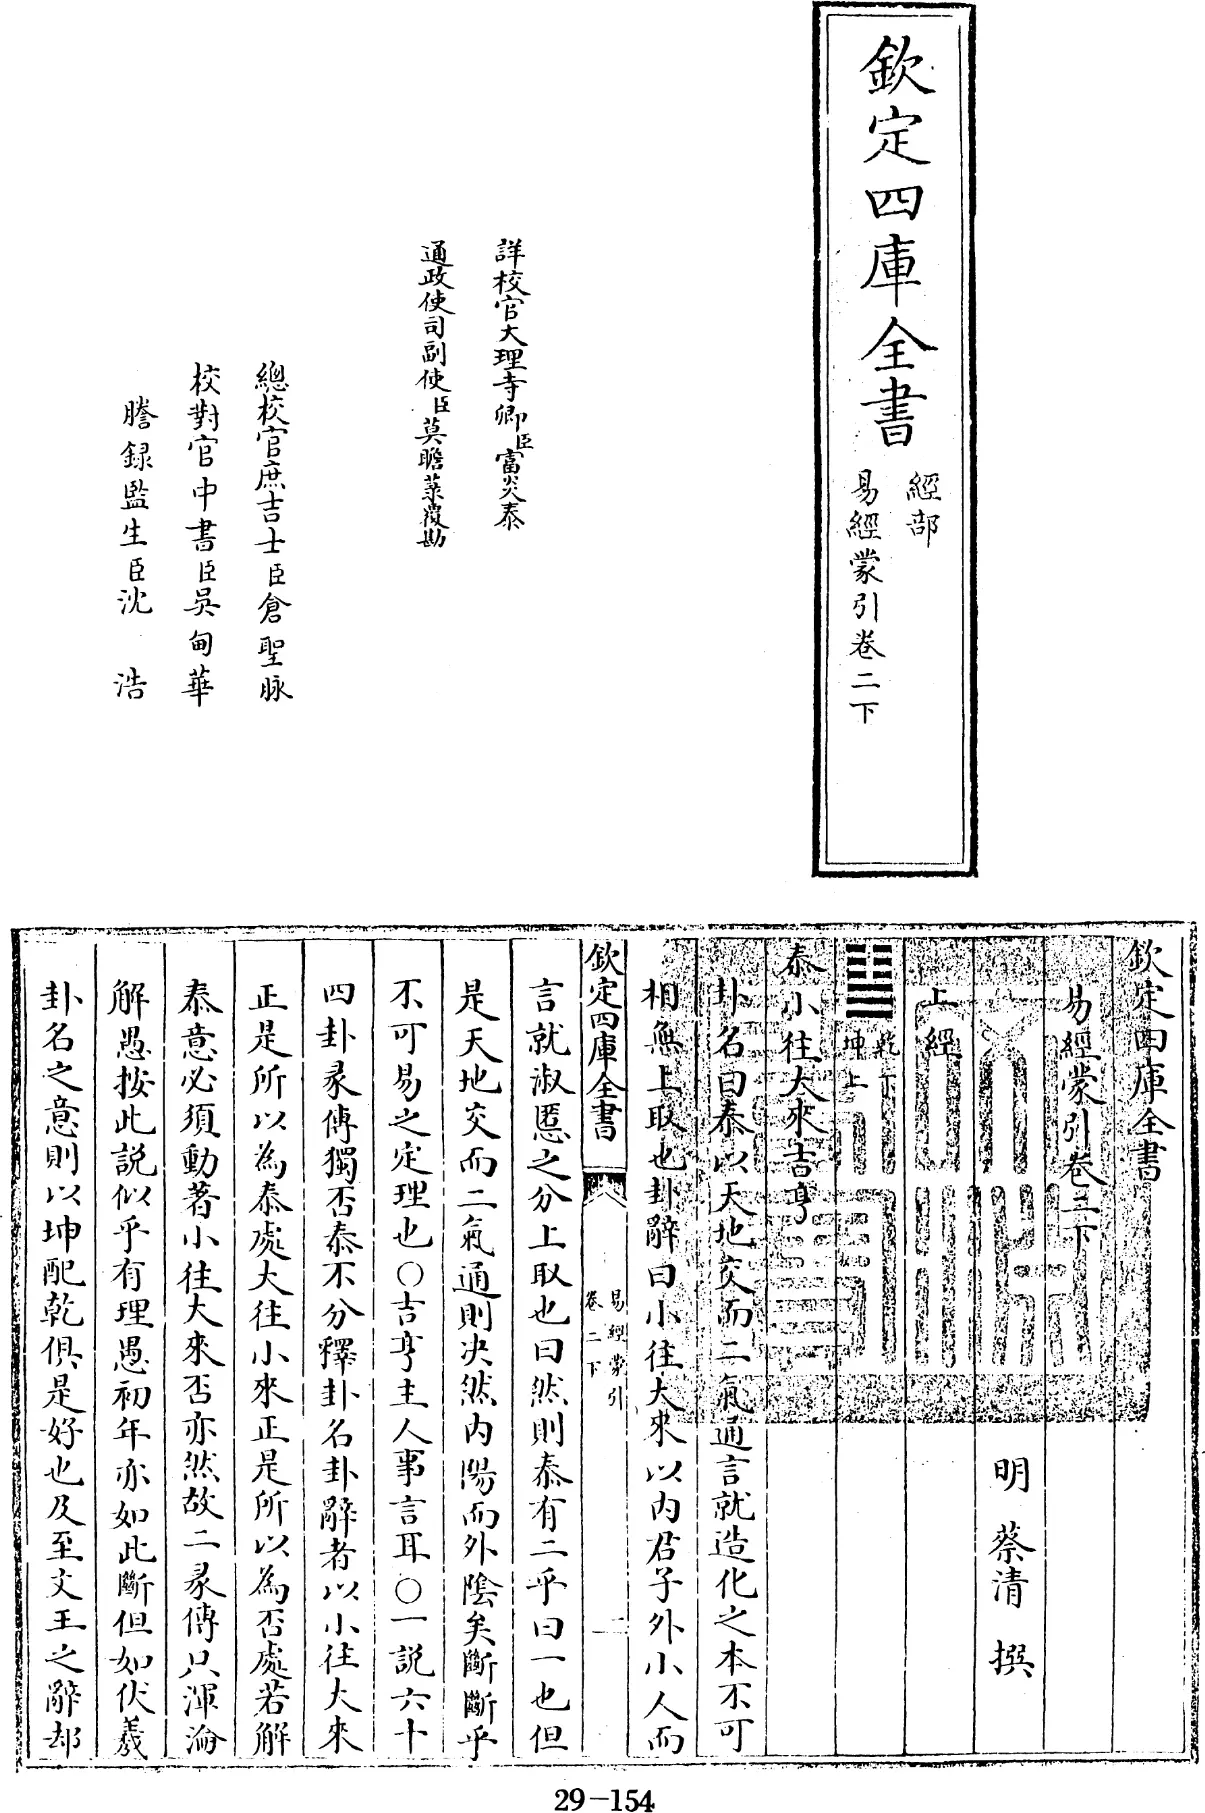 欽定四庫全書
經部
易經蒙引卷二下
詳校官大理寺卿臣富炎泰
通政使司副使臣莫瞻菉覆勘
總校官庶吉士臣倉聖脉
校對官中書臣吳甸華
謄録監生臣沈浩
欽定四庫全書
易經蒙引卷二下
明 蔡清 撰
上經
乾下
坤上
泰小往大來吉亨
卦名曰泰以天地交而二氣通言就造化之本不可
相無上取也卦辭曰小往大來以内君子外小人而
欽定四庫全書
易經蒙引
卷二下
二
言就淑慝之分上取也曰然則泰有二乎曰一也但
是天地交而二氣通則決然内陽而外隂矣斷斷乎
不可易之定理也○吉亨主人事言耳○一説六十
四卦彖傳獨否泰不分釋卦名卦辭者以小往大來
正是所以為泰處大往小來正是所以為否處若解
泰意必須動著小往大來否亦然故二彖傳只渾淪
解愚按此説似乎有理愚初年亦如此斷但如伏羲
卦名之意則以坤配乾俱是好也及至文王之辭却
29-154